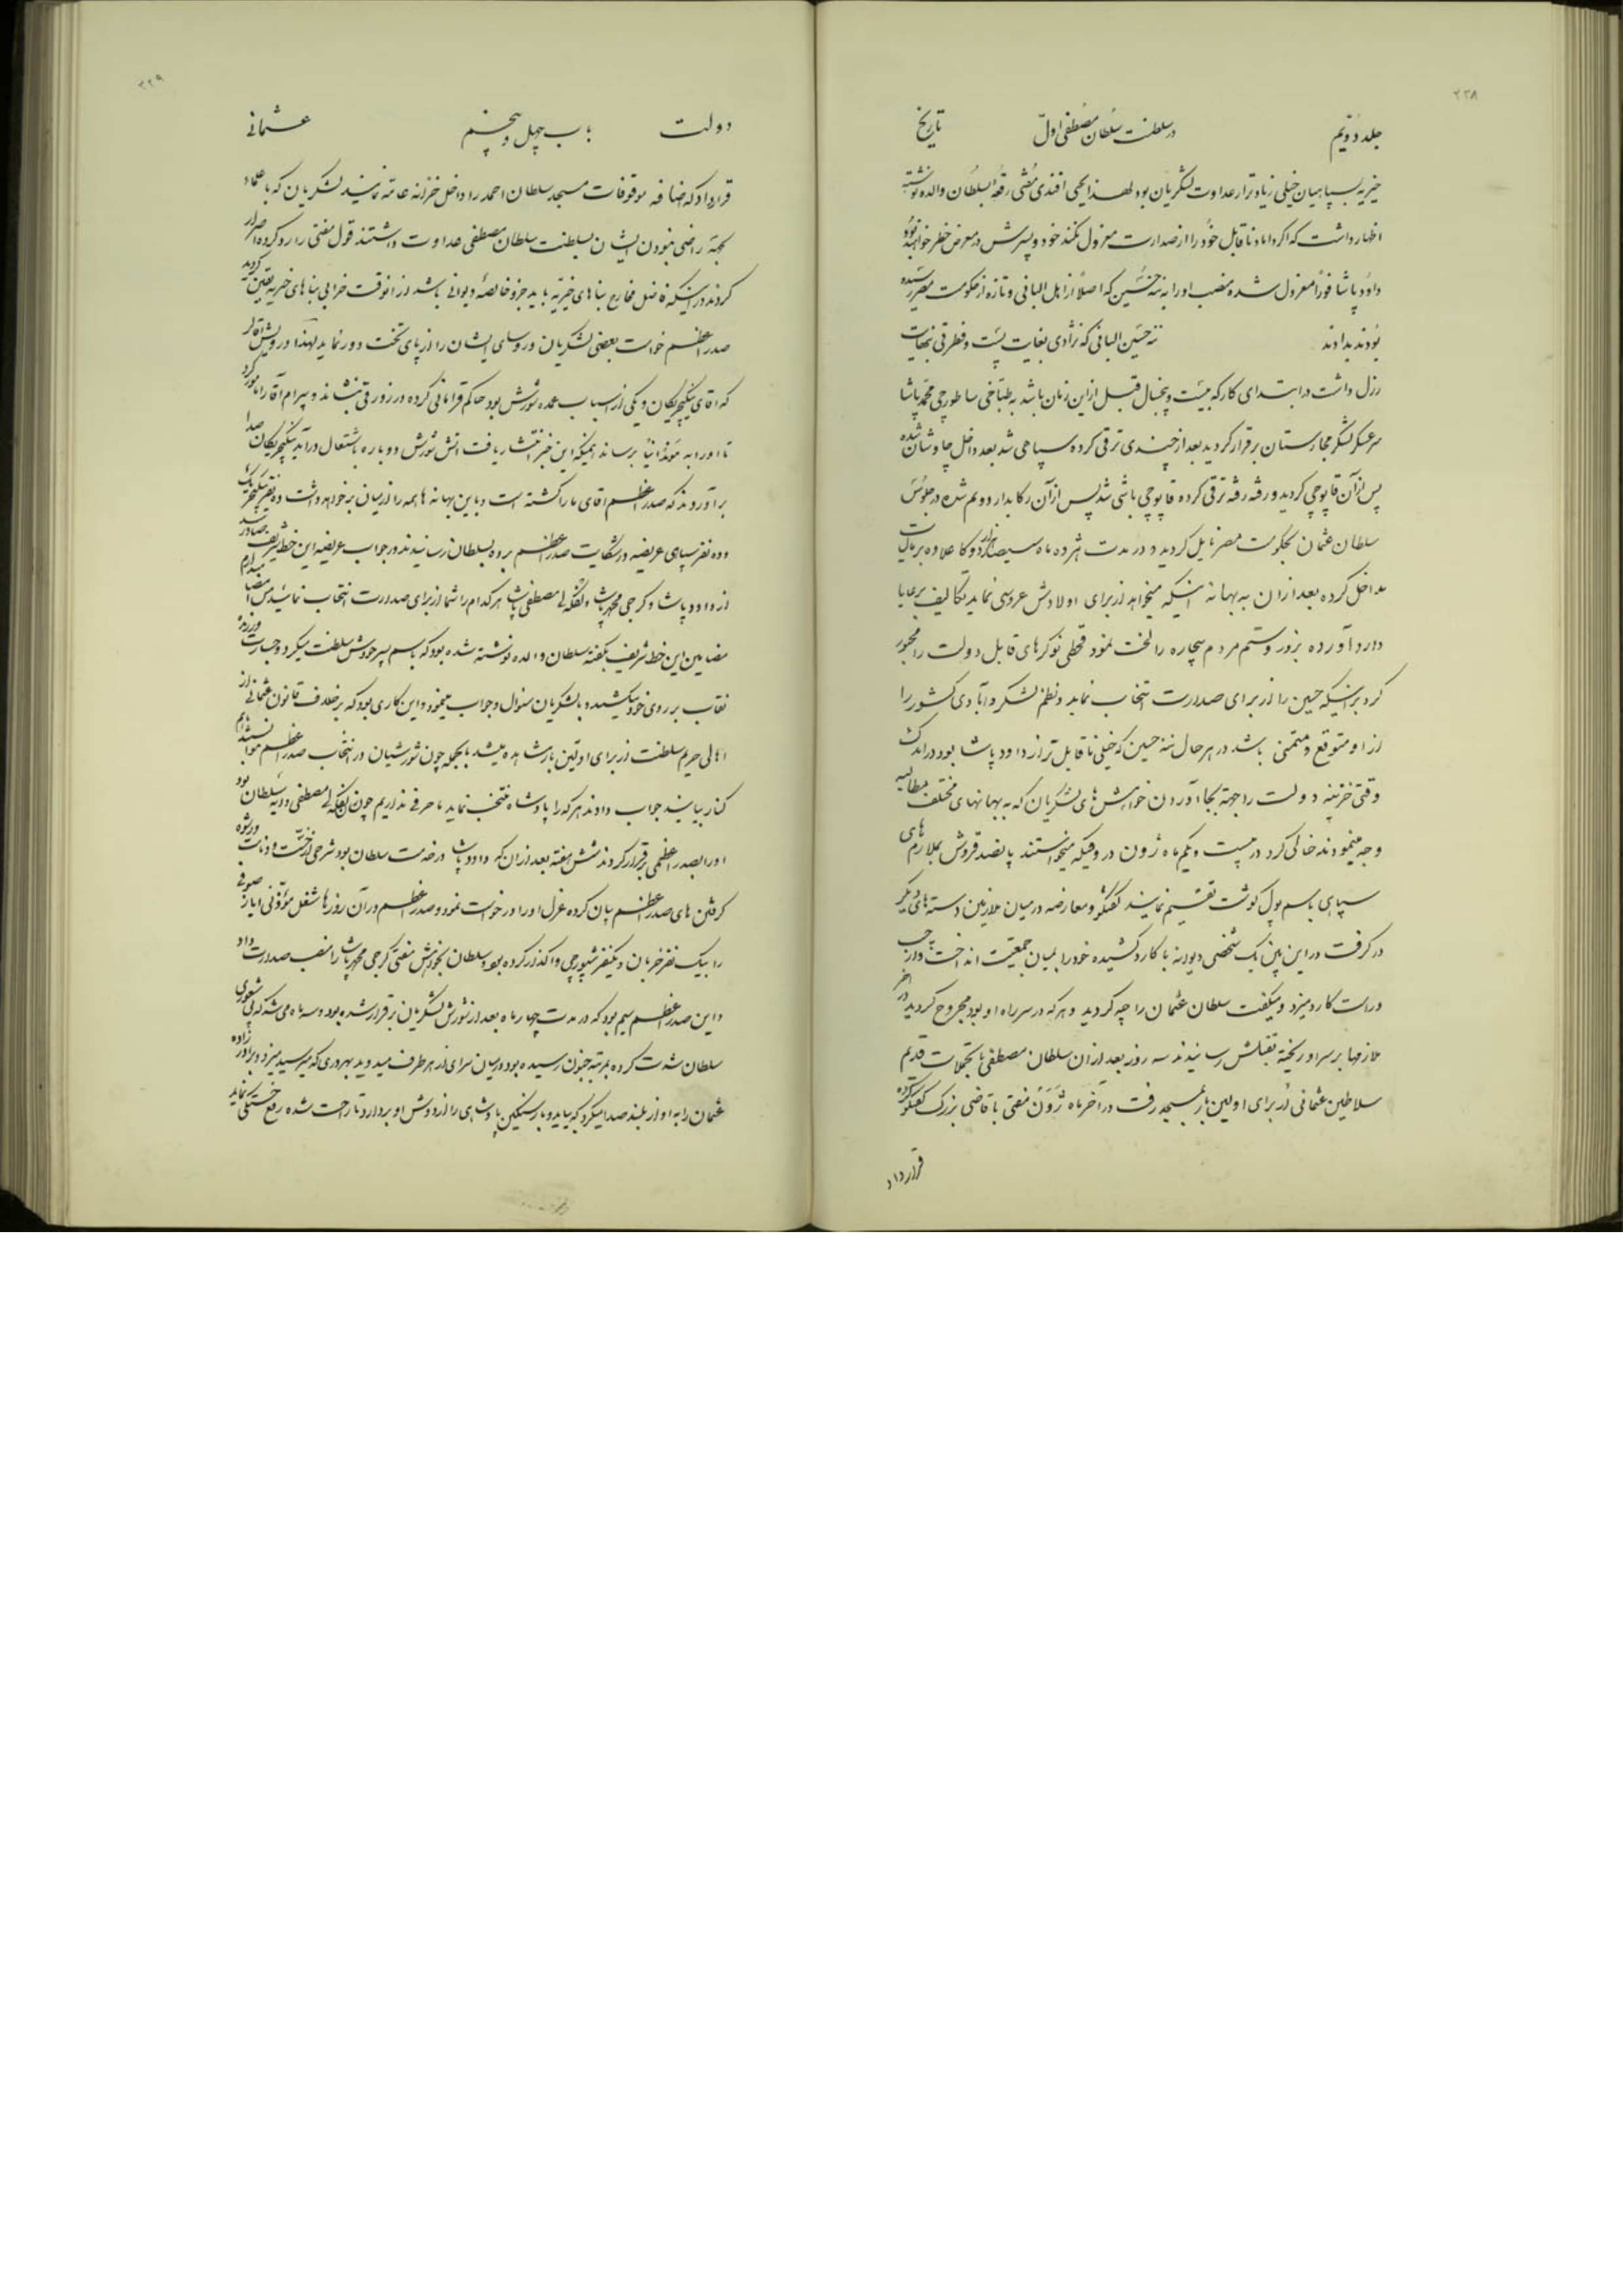 ۲۲۸
جلد دویم در سلطنت سلطان مصطفی اول تاریخ
خیریه بسپاهیان خیلی زیاد تر از عداوت لشگریان بود لهذا یحیی افندی مفتی رقعهٔ بسلطان والده نوشته
اظهار داشت که اگر داماد ناقابل خود را از صدارت معزول نکند خود و پسرش در معرض خطر خواهند بود
داود پاشا فوراً معزول شده منصب او را به ننه حسین که اصلاً از اهل البانی و تازه از حکومت مصر رسیده
بودند بدادند ننه حسین البانی که نژادی بغایت پست و فطرتی بنهایت
رزل داشت در ابتدای کار که بیست و پنجسال قبل از این زمان باشد به طباخی ساطورجی محمد پاشا
سرعسکر لشکر مجارستان برقرار گردید بعد از چندی ترقی کرده سپاهی شد بعد داخل چاوشان شده
پس از آن قاپوچی گردید و رفته رفته ترقی کرده قاپوچی باشی شد پس از آن رکابدار دویم شده در جلوس
سلطان عثمان بحکومت مصر نایل گردید و در مدت هژده ماه سیصد هزار دوکا علاوه بر مالیات
مداخل کرده بعد از ان به بهانه اینکه میخواهد از برای اولادش عروسی نماید تکالیف برعایا
وارد آورده بزور و ستم مردم بیچاره را لخت نمود قحطی نوکرهای قابل دولت را مجبور
کرد براینکه حسین را از برای صدارت انتخاب نماید و نظم لشکر و آبادی کشور را
از او متوقع و متمنی باشد در هر حال ننه حسین که خیلی ناقابل تر از داود پاشا بود در اندک
وقتی خزینه دولت را جهة بجا آوردن خواهش های لشگریان که به بهانهای مختلف مطالبه
وجه مینمودند خالی کرد در بیست و یکم ماه ژون در وقتیکه میخواستند پانصد قروش بملازم های
سپاهی باسم پول گوشت تقسیم نمایند گفتگو و معارضه در میان ملازمین دسته های دیگر
در گرفت در این بین یک شخصی دیوانه با کارد کشیده خود را بمیان جمعیت انداخت و از چپ
و راست کارد میزد و میگفت سلطان عثمان را چه کردید و هر که در سر راه او بود مجروح گردید در آخر
ملازمها بر سر او ریخته بقتلش رسانیدند سه روز بعد از ان سلطان مصطفی با تجملات قدیم
سلاطین عثمانی از برای اولین بار بمسجد رفت در آخر ماه ژون مفتی با قاضی بزرگ گفتگو کرده
قرار داد
۲۲۹
دولت باب چهل و پنجم عثمانی
قرار داد که اضافه موقوفات مسجد سلطان احمد را داخل خزانه عامه نمایند لشکریان که با علماء
بجهة راضی نبودن ایشان بسلطنت سلطان مصطفی عداوت داشتند قول مفتی را رد کرده اصرار
کردند در اینکه فاضل مخارج بناهای خیریه باید جزو خالصهٔ دیوانی باشد از انوقت خرابی بناهای خیریه یقین گردید
صدر اعظم خواست بعضی لشکریان و روسای ایشان را از پای تخت دور نماید لهذا درویش آقا را
که آقای ینگیچریگان و یکی از اسباب عمده شورش بود حاکم قرامانی کرده در زورقی نشاند و بیرام آقا را مامور کرد
تا او را به مودانیا برساند همینکه این خبر انتشار یافت اتش شورش دوباره باشتعال درآمد ینگیچریگان صدا
برآوردند که صدر اعظم اقای ما را کشته است و باین بهانه ها همه را از میان بر خواهد داشت ده نفر ینگیچری
و ده نفر سپاهی عریضه در شکایت صدر اعظم برده بسلطان رسانیدند در جواب عریضه این خط شریف صادر شد
از داود پاشا و گرجی محمد پاشا و لفکه لی مصطفی پاشا هر کدام را شما از برای صدارت انتخاب نمائید من امضا میدارم
مضامین این خط شریف بگفته سلطان والده نوشته شده بود که باسم پسر خودش سلطنت میکرد و جسارت ورزیده
نقاب بر روی خود میکشید و با لشکریان سئوال و جواب مینمود و این کاری بود که بر خلاف قانون عثمانی از
اهالی حرم سلطنت از برای اولین بار مشاهده میشد بالجمله چون شورشیان در انتخاب صدر اعظم نتوانستند با هم
کنار بیایند جواب دادند هر که را پادشاه منتخب نماید ما حرفی نداریم چون لفکه لی مصطفی دایه سلطان بود
او را بصدر اعظمی برقرار کردند شش هفته بعد از ان که داود پاشا در خدمت سلطان بود شرحی از خست و دنائت و رشوه
گرفتن های صدر اعظم بیان کرده عزل او را درخواست نمود و صدر اعظم در آن روزها شغل مؤذنی ایاز صوفی
را بیک نفر خربان و یکنفر شیپورچی واگذار کرده بود سلطان بخواهش مفتی گرجی محمد پاشا را منصب صدارت داد
و این صدر اعظم سیم بود که در مدت چهار ماه بعد از شورش لشگریان برقرار شده بود و سه ماه می شد که بی شعوری
سلطان شدت کرده بمرتبه جنون رسیده بود و در میان سرای از هر طرف میدوید بهر دری که میرسید میزد و برادر زاده
عثمان را به آواز بلند صدا میکرد که بیاید و بار سنگین پادشاهی را از دوش او بردارد تا راحت شده رفع خستگی نماید